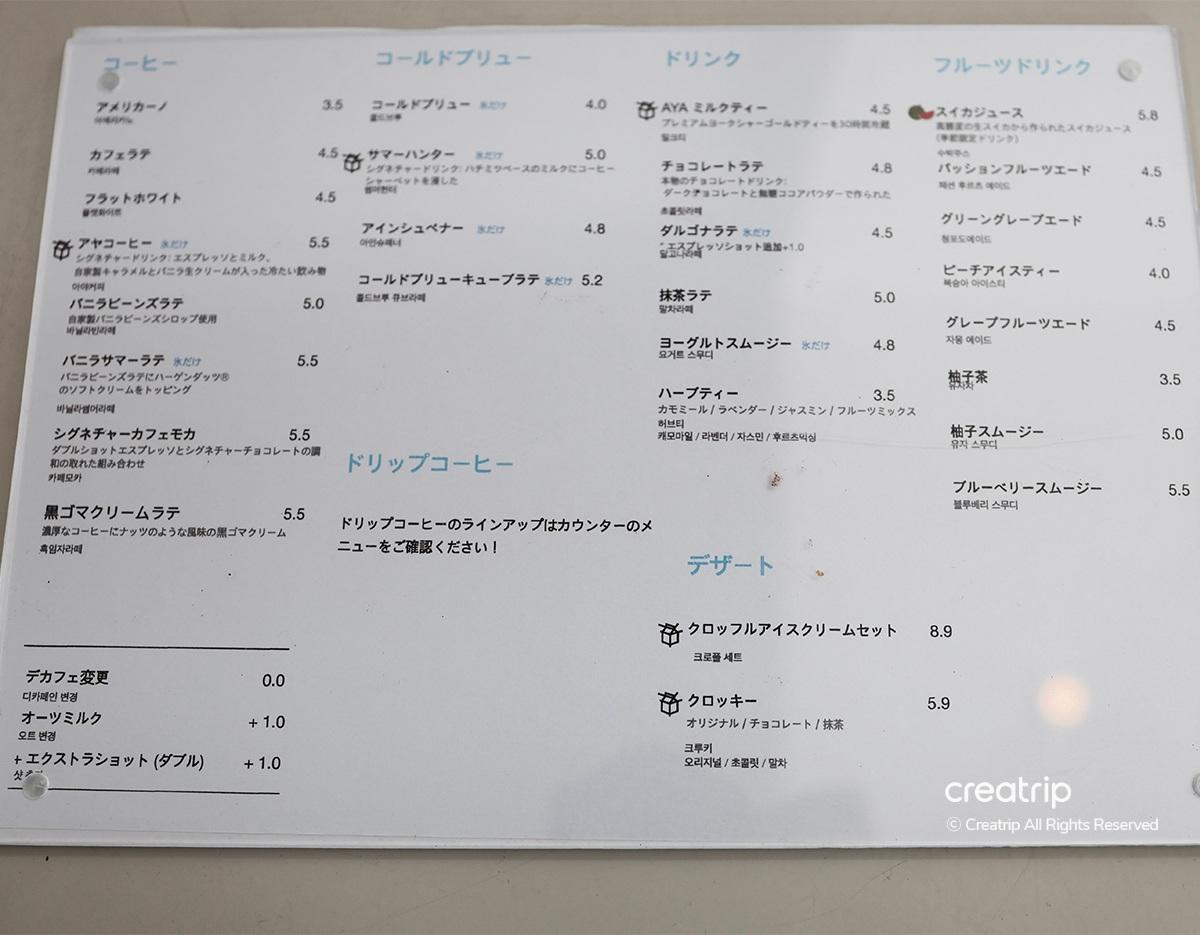 コーヒー
アメリカーノ 3.5
아메리카노
カフェラテ 4.5
카페라떼
フラットホワイト 4.5
플랫화이트
アヤコーヒー 氷だけ 5.5
シグネチャードリンク: エスプレッソとミルク、
自家製キャラメルとバニラ生クリームが入った冷たい飲み物
아야커피
バニラビーンズラテ 5.0
自家製バニラビーンズシロップ使用
바닐라빈라떼
バニラサマーラテ 氷だけ 5.5
バニラビーンズラテにハーゲンダッツ®
のソフトクリームをトッピング
바닐라썸머라떼
シグネチャーカフェモカ 5.5
ダブルショットエスプレッソとシグネチャーチョコレートの調
和の取れた組み合わせ
카페모카
黒ゴマクリームラテ 5.5
濃厚なコーヒーにナッツのような風味の黒ゴマクリーム
흑임자라떼
デカフェ変更 0.0
디카페인 변경
オーツミルク + 1.0
오트 변경
+ エクストラショット (ダブル) + 1.0
샷
コールドブリュー
コールドブリュー 氷だけ 4.0
콜드브루
サマーハンター 氷だけ 5.0
シグネチャードリンク: ハチミツベースのミルクにコーヒー
シャーベットを浸した
썸머헌터
アインシュペナー 氷だけ 4.8
아인슈페너
コールドブリューキューブラテ 氷だけ 5.2
콜드브루 큐브라떼
ドリップコーヒー
ドリップコーヒーのラインアップはカウンターのメ
ニューをご確認ください！
ドリンク
AYA ミルクティー 4.5
プレミアムヨークシャーゴールドティーを30時間冷蔵
밀크티
チョコレートラテ 4.8
本物のチョコレートドリンク:
ダークチョコレートと無糖ココアパウダーで作られた
초콜릿라떼
ダルゴナラテ 氷だけ 4.5
* エスプレッソショット追加+1.0
달고나라떼
抹茶ラテ 5.0
말차라떼
ヨーグルトスムージー 氷だけ 4.8
요거트 스무디
ハーブティー 3.5
カモミール / ラベンダー / ジャスミン / フルーツミックス
허브티
캐모마일 / 라벤더 / 자스민 / 후르츠믹싱
デザート
クロッフルアイスクリームセット 8.9
크로플 세트
クロッキー 5.9
オリジナル / チョコレート / 抹茶
크루키
오리지널 / 초콜릿 / 말차
フルーツドリンク
スイカジュース 5.8
高糖度の生スイカから作られたスイカジュース
(季節限定ドリンク)
수박주스
パッションフルーツエード 4.5
패션 후르츠 에이드
グリーングレープエード 4.5
청포도에이드
ピーチアイスティー 4.0
복숭아 아이스티
グレープフルーツエード 4.5
자몽 에이드
柚子茶 3.5
유자차
柚子スムージー 5.0
유자 스무디
ブルーベリースムージー 5.5
블루베리 스무디
creatrip
© Creatrip All Rights Reserved